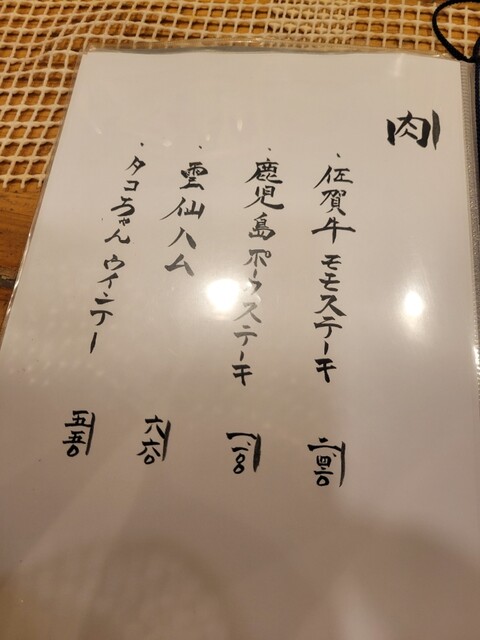 肉
・佐賀牛モモステーキ 二、四二〇
・鹿児島ポークステーキ
・雲仙ハム 六六〇
・タコちゃんウインナー 五五〇